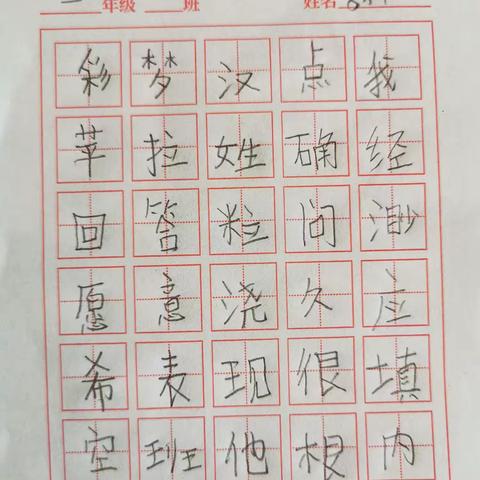 年级 班 姓名
彩 梦 汉 点 我
苹 拉 姓 确 经
回 答 粒 问 渺
愿 意 浇 久 应
希 表 现 很 填
空 班 他 根 内